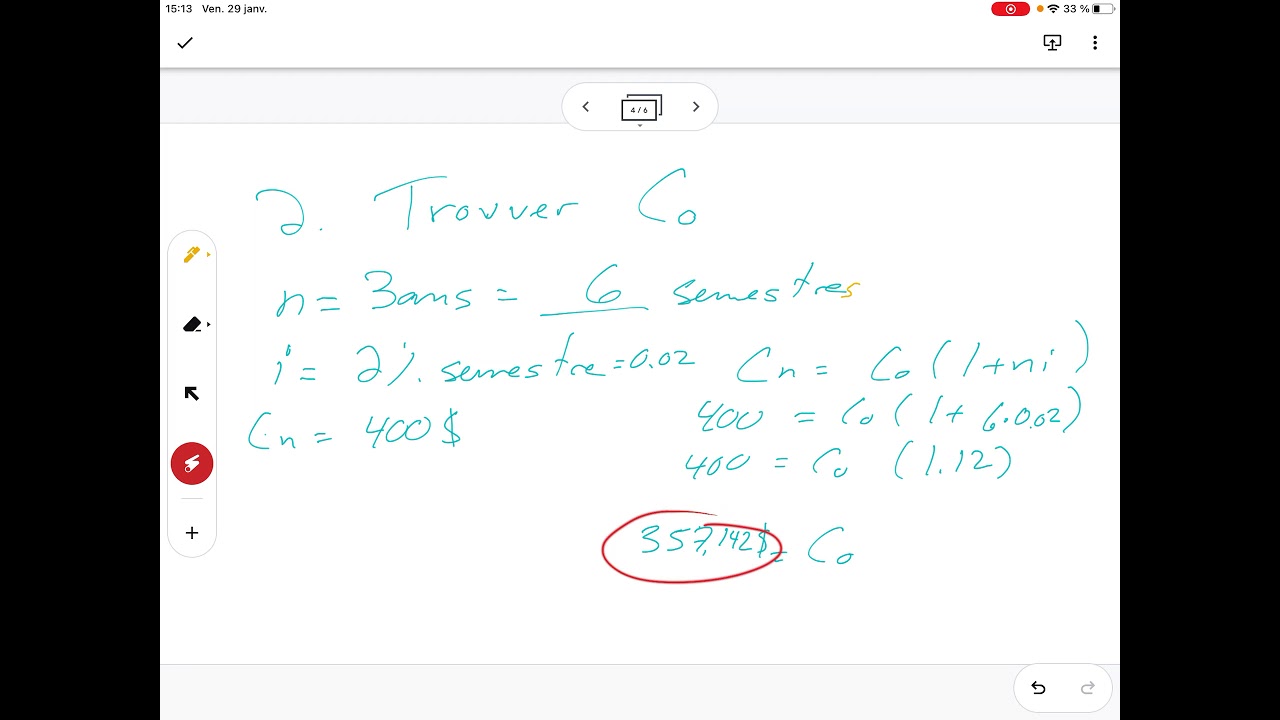 15:13 Ven. 29 janv.
33 %
4 / 6
2. Trouver Co
n = 3ans = 6 semestres
i = 2%. semestre = 0.02
Cn = Co (1+ni)
Cn = 400$
400 = Co (1+ 6•0.02)
400 = Co (1.12)
357,142$ = Co